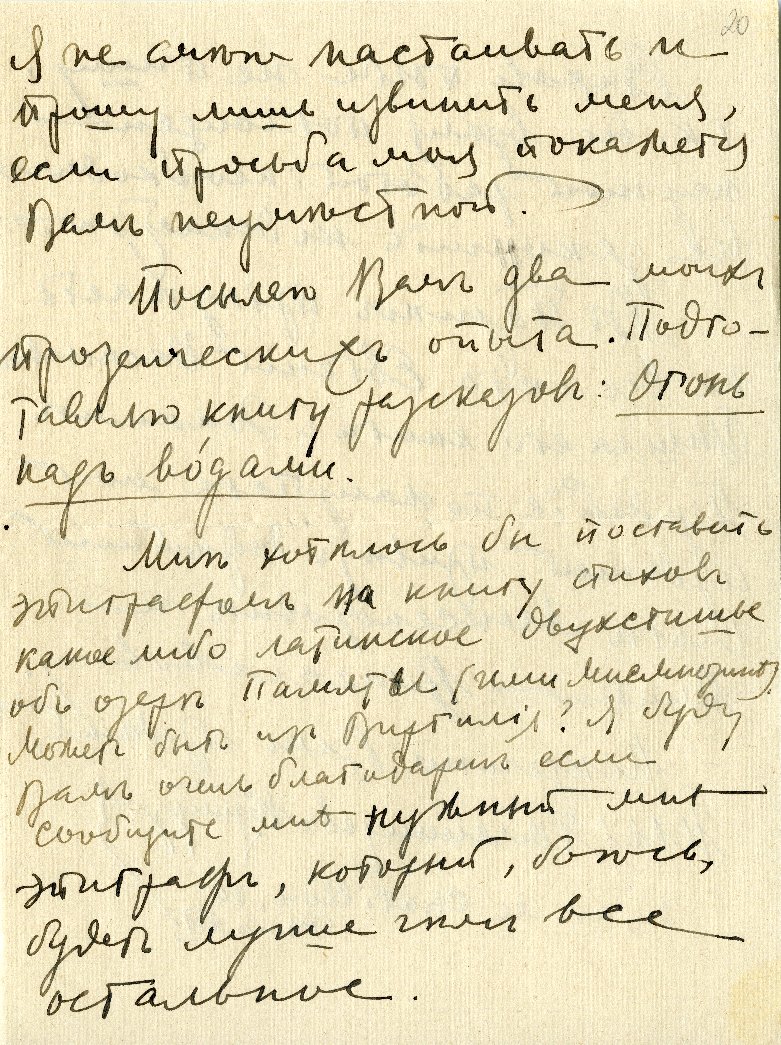 20
Я не смѣю настаивать и
прошу лишь извинить меня,
если просьба моя покажется
Вамъ неумѣстной.
Посылаю Вамъ два моихъ
прозаическихъ опыта. Подго-
товляю книгу разсказовъ: Огонь
надъ во́дами.
Мнѣ хотѣлось бы поставить
эпиграфомъ на книгу стиховъ
какое либо латинское двухстишье
объ озерѣ Памяти (или
Можетъ быть изъ Виргилія? Я буду
Вамъ очень благодаренъ если
сообщите мнѣ нужный мнѣ
эпиграфъ, который, боюсь,
будетъ лучше чѣмъ все
остальное.